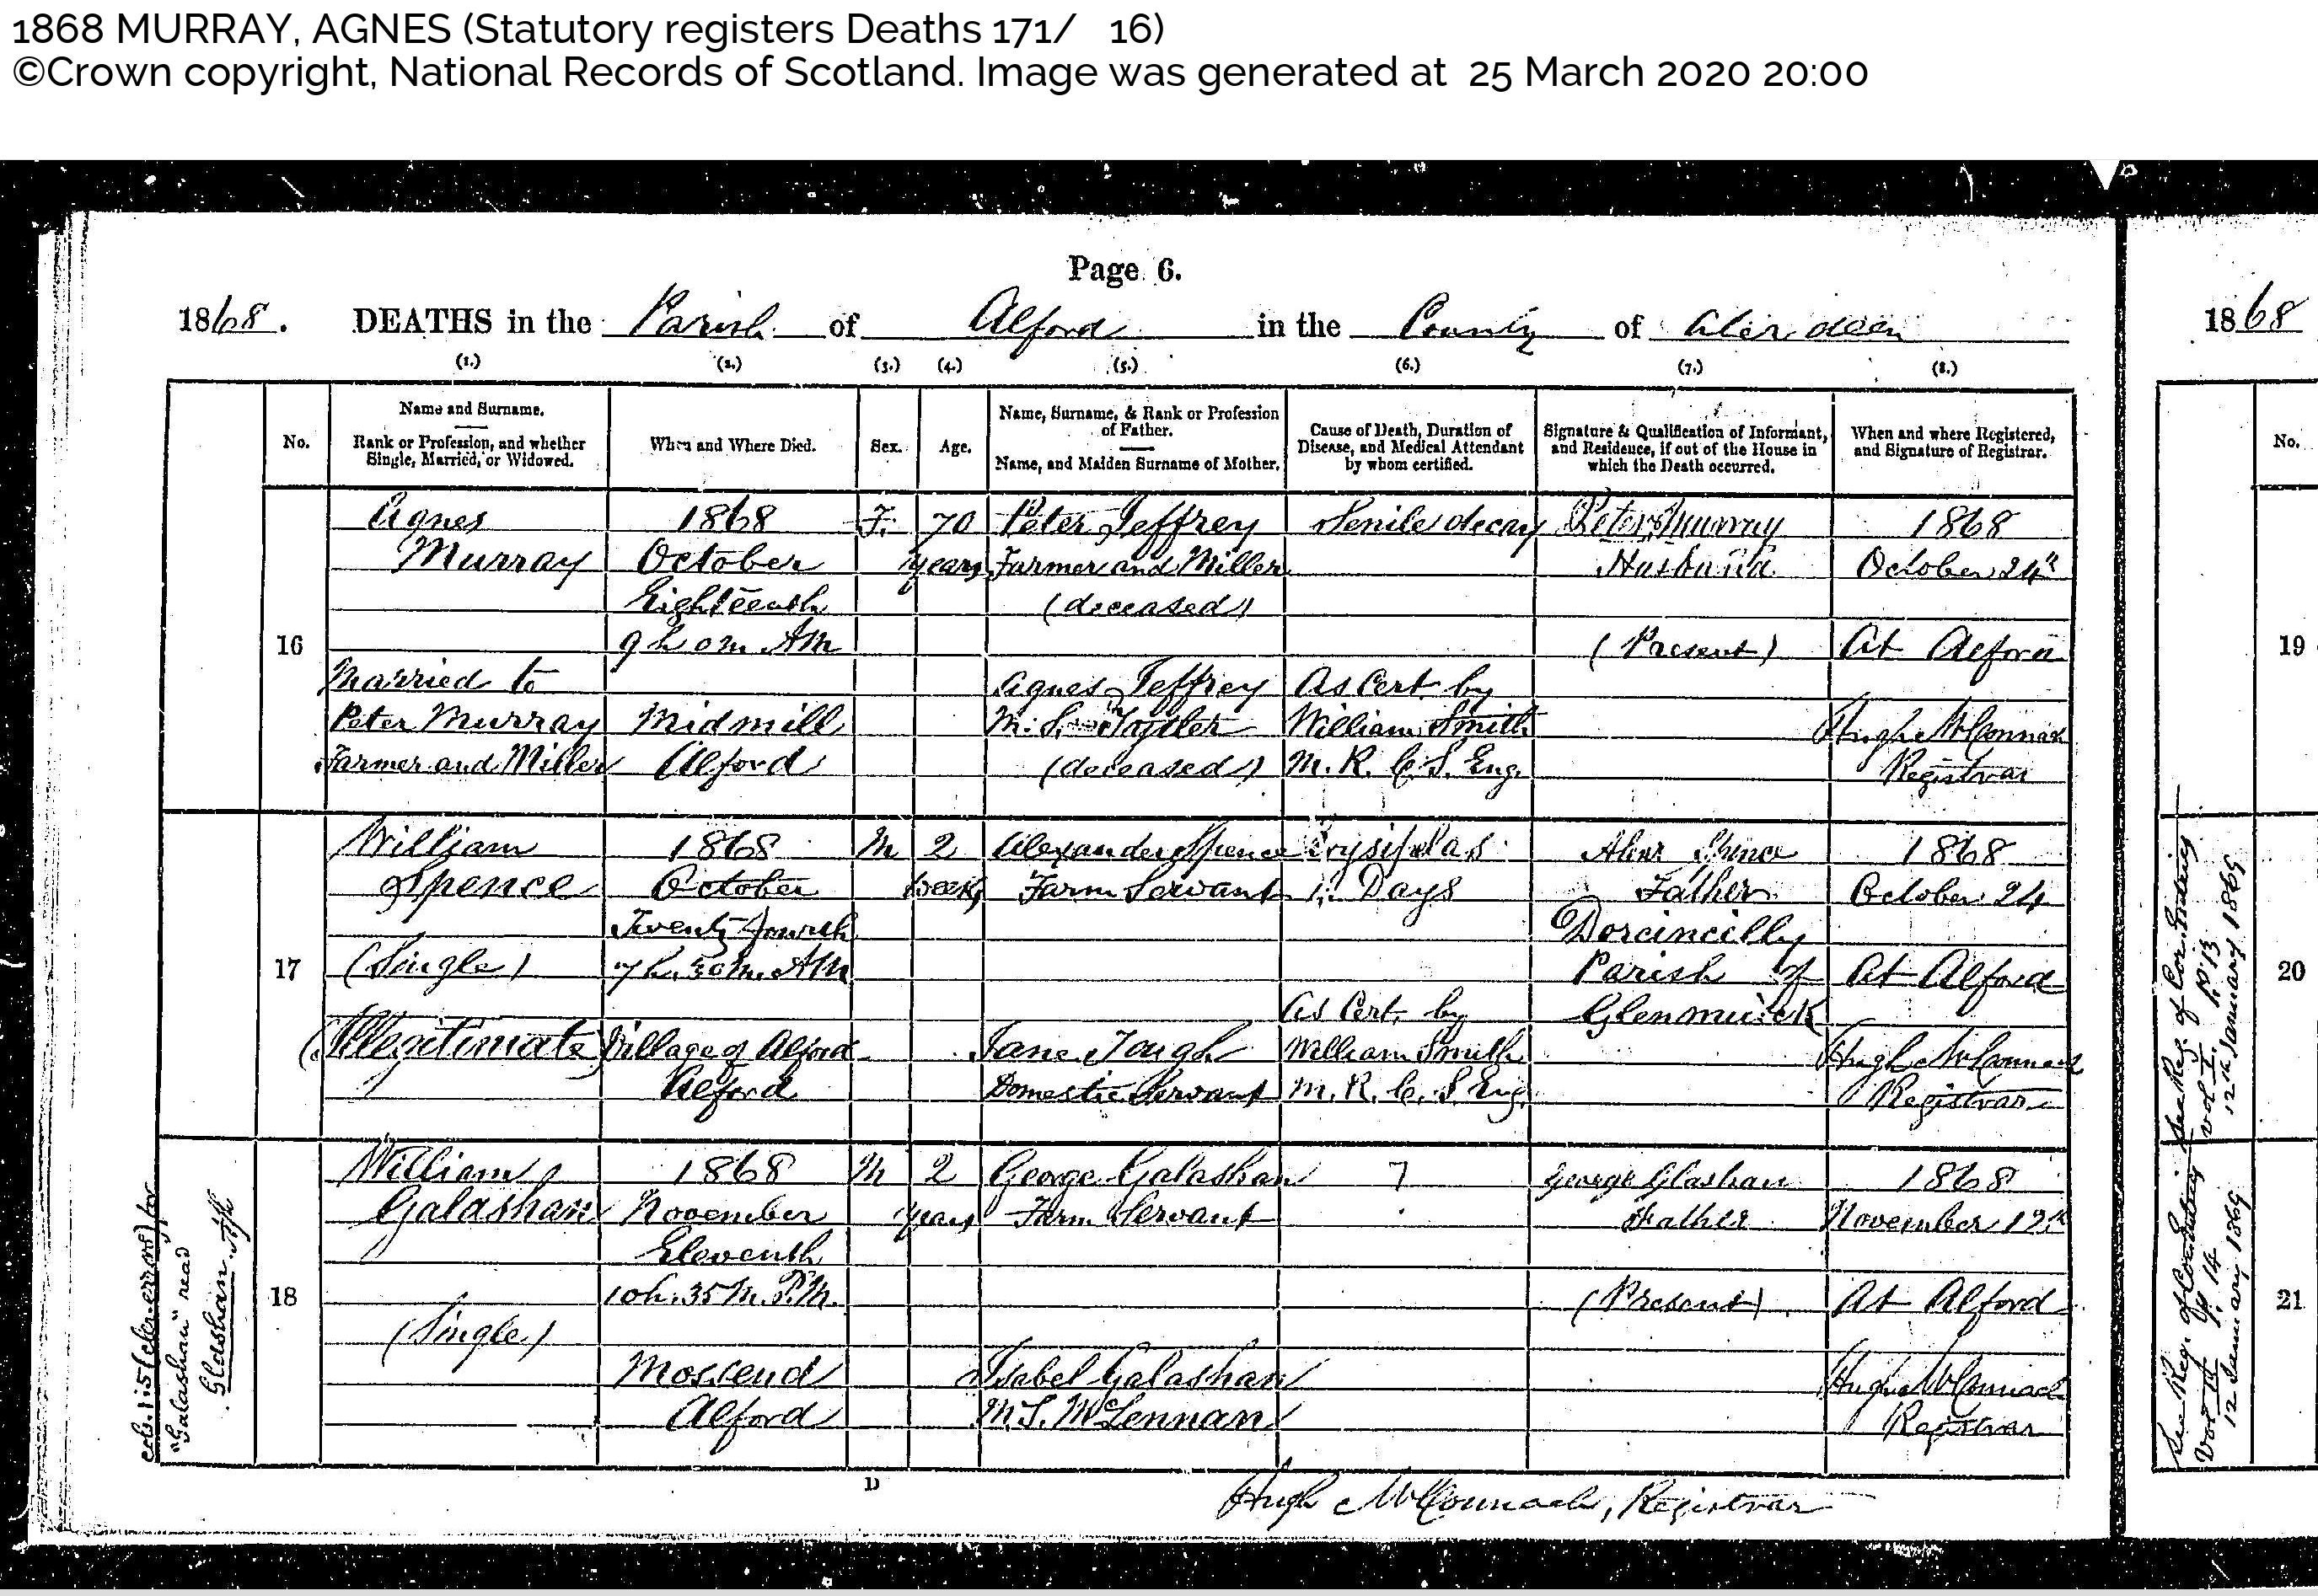 1868 MURRAY, AGNES (Statutory registers Deaths 171/ 16)
©Crown copyright, National Records of Scotland. Image was generated at 25 March 2020 20:00
Page 6.
1868. DEATHS in the Parish of Alford in the County of Aberdeen
1868
(1.) (2.) (3.) (4.) (5.) (6.) (7.) (8.)
No.
Name and Surname.
Rank or Profession, and whether
Single, Married, or Widowed.
When and Where Died.
Sex.
Age.
Name, Surname, & Rank or Profession
of Father.
Name, and Maiden Surname of Mother.
Cause of Death, Duration of
Disease, and Medical Attendant
by whom certified.
Signature & Qualification of Informant,
and Residence, if out of the House in
which the Death occurred.
When and where Registered,
and Signature of Registrar.
No.
16
Agnes
Murray
Married to
Peter Murray
Farmer and Miller
1868
October
Eighteenth
9 h. 0 m. AM
Midmill
Alford
F.
70
years
Peter Jeffrey
Farmer and Miller
(deceased)
Agnes Jeffrey
M.S. Taylor
(deceased)
Senile decay
As Cert. by
William Smith
M.R.C.S. Eng.
Peter Murray
Husband
(Present)
1868
October 24th
At Alford
Hugh McConnach
Registrar
19
17
William
Spence
(Single)
(Illegitimate)
1868
October
Twenty fourth
7 h. 30 m. AM
Village of Alford
Alford
M
2
weeks
Alexander Spence
Farm Servant
Jane Tough
Domestic Servant
Erysipelas
Days
As Cert. by
William Smith
M.R.C.S. Eng.
Alexr Spence
Father
Dorcincilly
Parish of
Glenmuick
1868
October 24
At Alford
Hugh McConnach
Registrar
20
18
William
Galashan
(Single)
1868
November
Eleventh
10 h. 35 m. P.M.
Mossend
Alford
M
2
years
George Galashan
Farm Servant
Isabel Galashan
M.S. McLennan
George Glashan
Father
(Present)
1868
November 12th
At Alford
Hugh McConnach
Registrar
21
cols. 1: 5 (cler. error) for
"Galashan" read
Glashan.
See Reg. of Cor. Entries
Vol I. P. 13
12th January 1869
See Reg. of Cor. Entries
Vol P. 14
12 January 1869
D
Hugh McConnach, Registrar